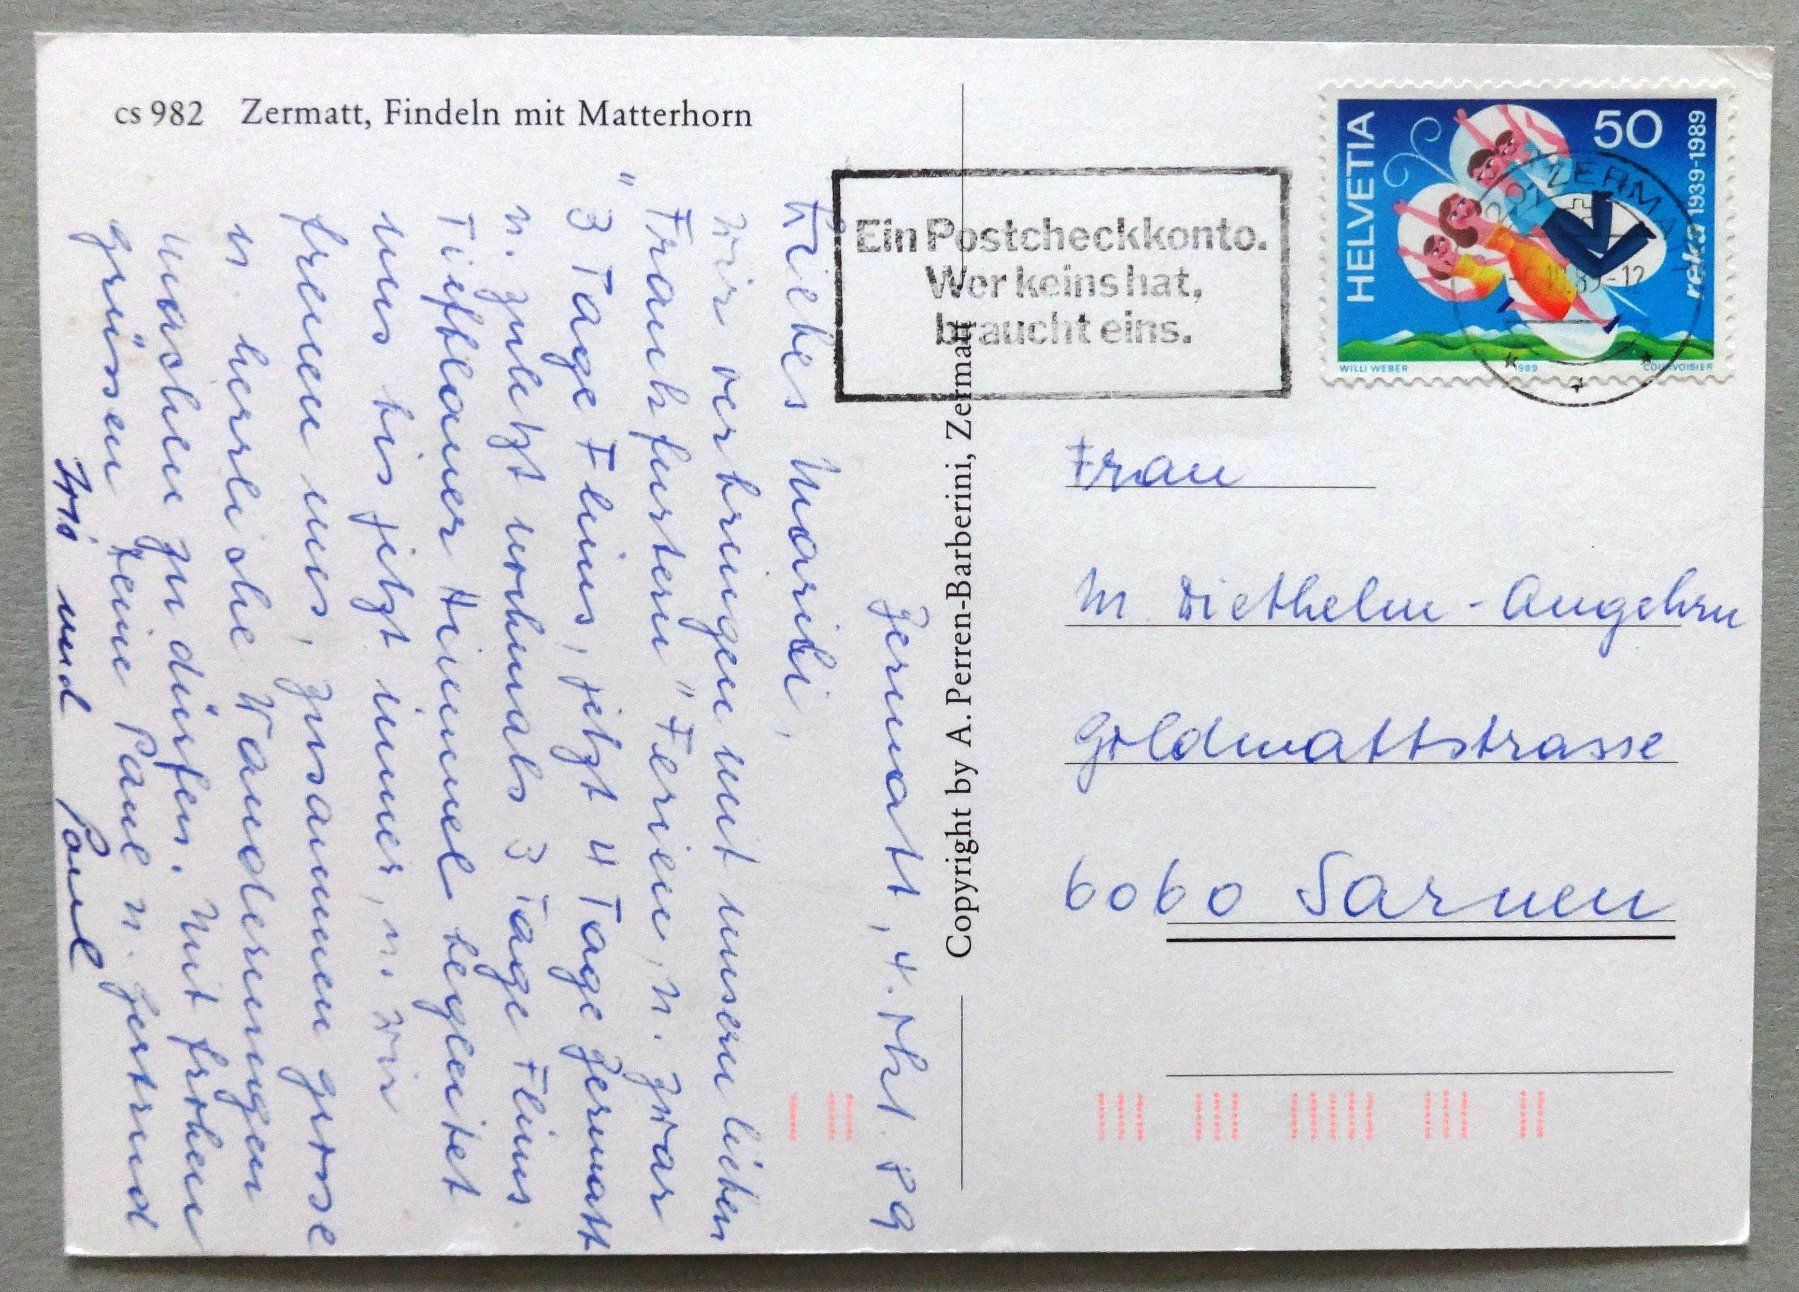 cs 982 Zermatt, Findeln mit Matterhorn
Zermatt, 4. Okt. 89
Liebes Maribi,
wir verbringen mit unsern lieben
"Frankfurtern" Ferien, u. zwar
3 Tage Flims, jetzt 4 Tage Zermatt
u. zuletzt nochmals 3 Tage Flims.
Tiefblauer Himmel begleitet
uns bis jetzt immer, u. wir
freuen uns, zusammen grosse
u. herrliche Wanderungen
machen zu dürfen. Mit frohen
grüssen Deine Paul u. Gertrud
und Paul
Copyright by A. Perren-Barberini, Zermatt
Ein Postcheckkonto.
Wer keins hat,
braucht eins.
HELVETIA
50
reka 1939-1989
WILLI WEBER
1989
COURVOISIER
ZERMATT
Frau
M. Diethelm-Angehrn
Goldmattstrasse
6060 Sarnen